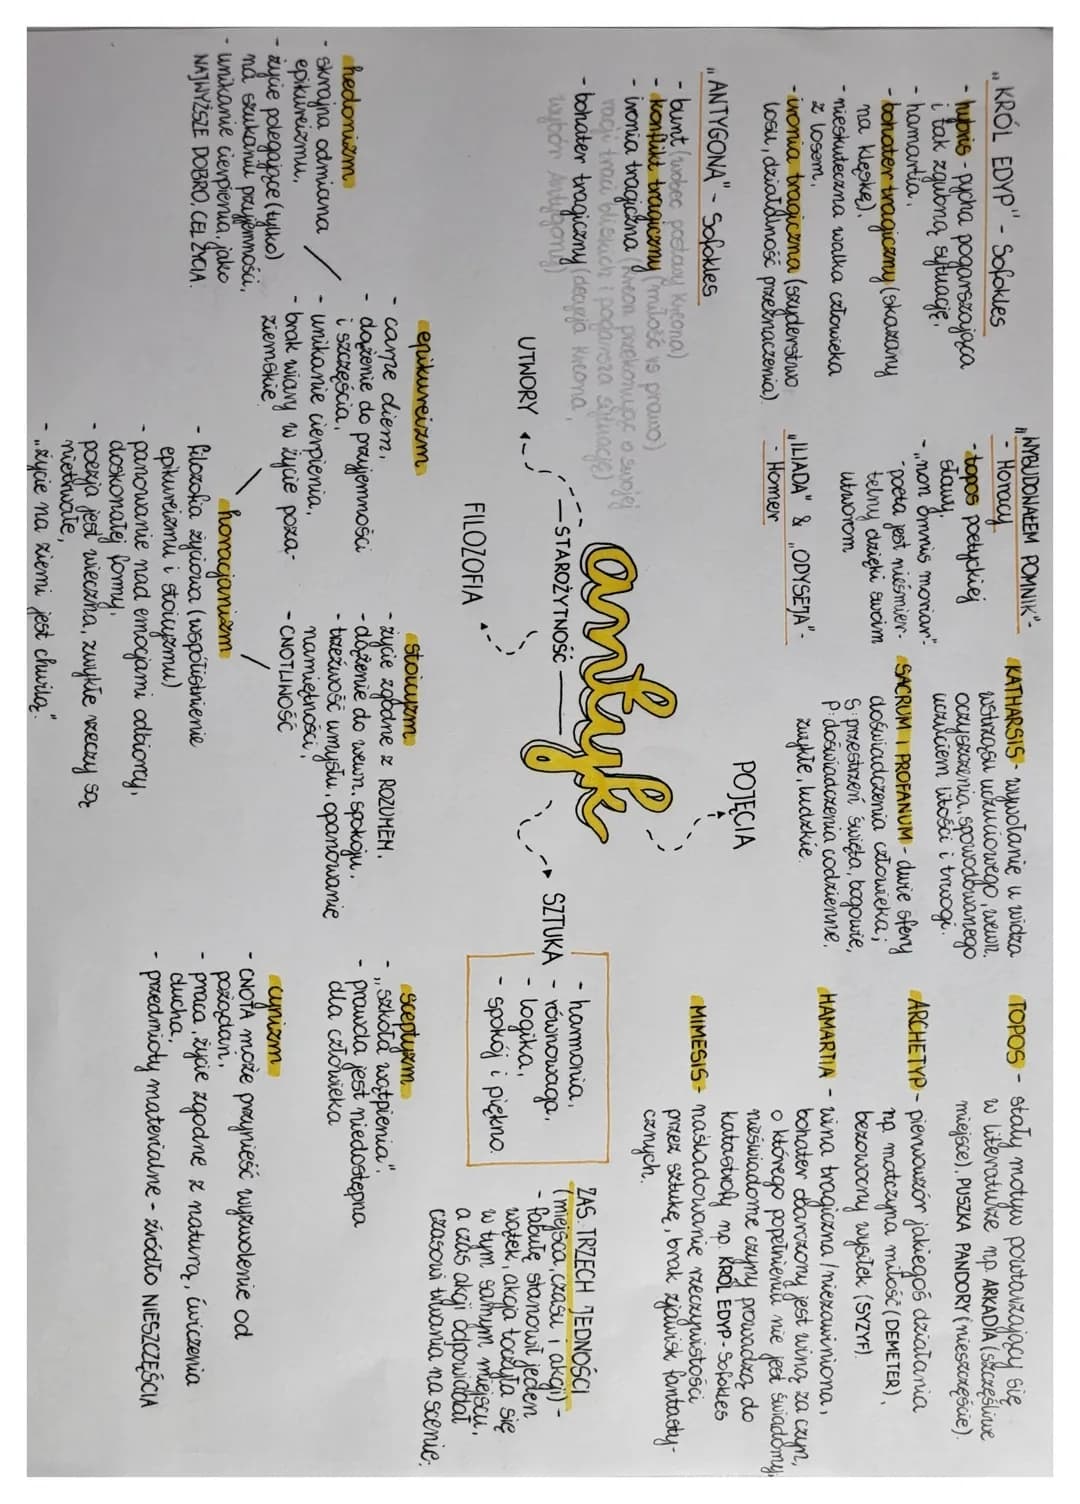 „KRÓL EDYP" - Sofokles
- hybris - pycha pogarszająca
i tak zgubną sytuację,
- hamartia,
- bohater tragiczny (skazany
na klęskę),
- nieskuteczna walka człowieka
z losem,
- ironia tragiczna (szyderstwo
losu, działalność przeznaczenia).
„ANTYGONA" - Sofokles
- bunt (wobec postawy Kreona)
- konflikt tragiczny (miłość vs prawo)
- ironia tragiczna (Kreon przekonując o swojej
racji traci bliskich i pogarsza sytuację)
- bohater tragiczny (decyzja Kreona,
wybór Antygony)
„WYBUDOWAŁEM POMNIK"-
- Horacy
- topos poetyckiej
sławy,
- „non omnis moriar"
- poeta jest nieśmier-
telny dzięki swoim
utworom
„ILIADA" & „ODYSEJA"-
- Homer
KATHARSIS - wywołanie u widza
wstrząsu uczuciowego, wewn.
oczyszczenia, spowodowanego
uczuciem litości i trwogi.
SACRUM i PROFANUM - dwie sfery
doświadczenia człowieka;
S: przestrzeń święta, bogowie,
P: doświadczenia codzienne,
zwykłe, ludzkie.
TOPOS - stały motyw powtarzający się
w literaturze np. ARKADIA (szczęśliwe
miejsce), PUSZKA PANDORY (nieszczęście).
ARCHETYP - pierwowzór jakiegoś działania
np. matczyna miłość (DEMETER),
bezowocny wysiłek (SYZYF).
HAMARTIA - wina tragiczna / niezawiniona,
bohater obarczony jest winą za czyn,
o którego popełnieniu nie jest świadomy,
nieświadome czyny prowadzą do
katastrofy np. KRÓL EDYP - Sofokles
MIMESIS - naśladowanie rzeczywistości
przez sztukę, brak zjawisk fantasty-
cznych.
POJĘCIA
antyk
STAROŻYTNOŚĆ
UTWORY
FILOZOFIA
SZTUKA
- harmonia,
- równowaga,
- logika,
- spokój i piękno.
ZAS. TRZECH JEDNOŚCI
(miejsca, czasu i akcji) -
- fabułę stanowił jeden
wątek, akcja toczyła się
w tym samym miejscu,
a czas akcji odpowiadał
czasowi trwania na scenie.
hedonizm
- skrajna odmiana
epikureizmu,
- życie polegające (tylko)
na szukaniu przyjemności,
- unikanie cierpienia, jako
NAJWYŻSZE DOBRO, CEL ŻYCIA.
epikureizm
- carpe diem,
- dążenie do przyjemności
i szczęścia,
- unikanie cierpienia,
- brak wiary w życie poza-
ziemskie.
stoicyzm
- życie zgodne z ROZUMEM,
- dążenie do wewn. spokoju,
- trzeźwość umysłu, opanowanie
namiętności,
- CNOTLIWOŚĆ
horacjanizm
- filozofia życiowa (współistnienie
epikureizmu i stoicyzmu)
- panowanie nad emocjami odbiorcy,
doskonałej formy,
- poezja jest wieczna, zwykłe rzeczy są
nietrwałe,
- „życie na ziemi jest chwilą."
sceptyzm
- „szkoła wątpienia",
- prawda jest niedostępna
dla człowieka
cynizm
- CNOTA może przynieść wyzwolenie od
pożądań,
- praca, życie zgodne z naturą, ćwiczenia
ducha,
- przedmioty materialne - źródło NIESZCZĘŚCIA